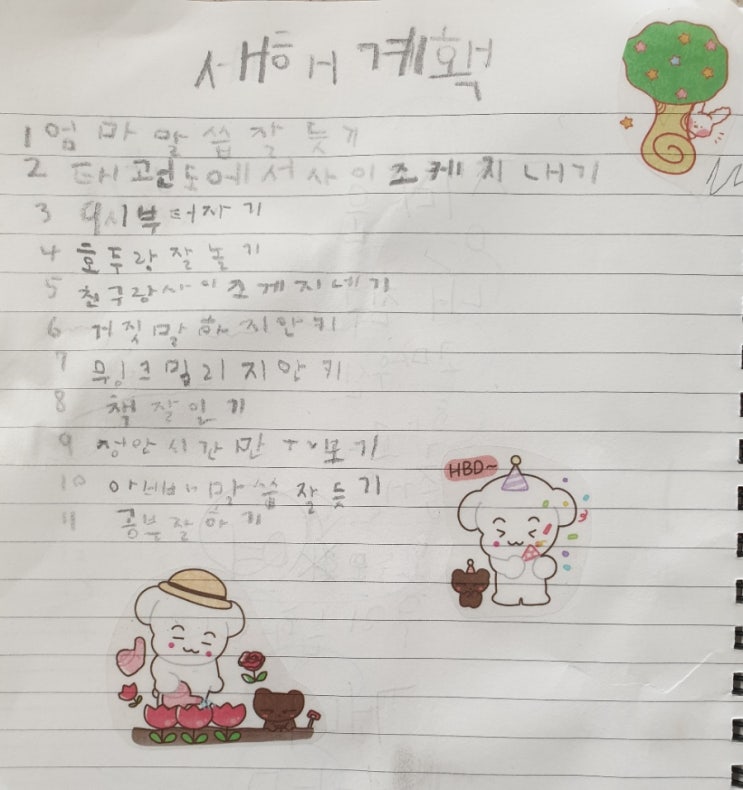 새해 계획
1 엄마 말씀 잘 듯기
2 태권도에서 사이 조케 지내기
3 9시부터 자기
4 호두랑 잘 놀기
5 친구랑 사이 조게 지네기
6 거짓말 하지 안키
7 무잉크 밀리지 안키
8 책 잘 일기
9 정안 시간만 보기
10 아빠 말씀 잘 듯기
11 공부 잘 하기
HBD~